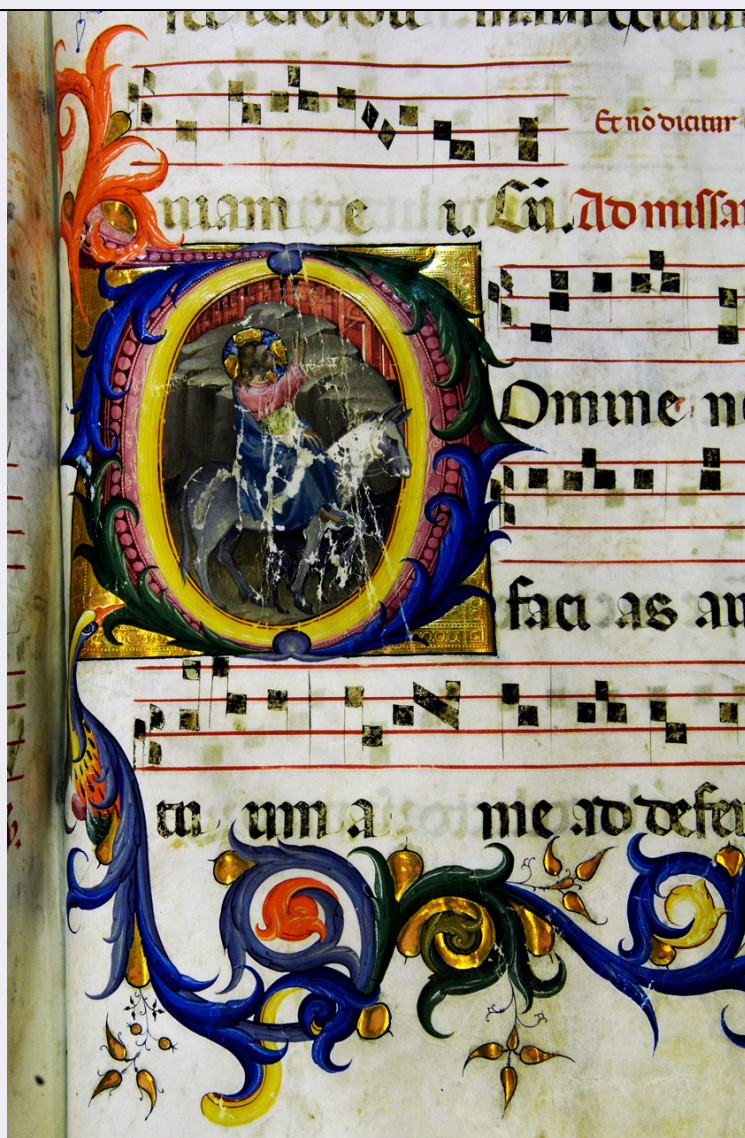 Et nō dicitur
niam e i. Ad missam
Omine ne
faci as au
tu um a me ad defen